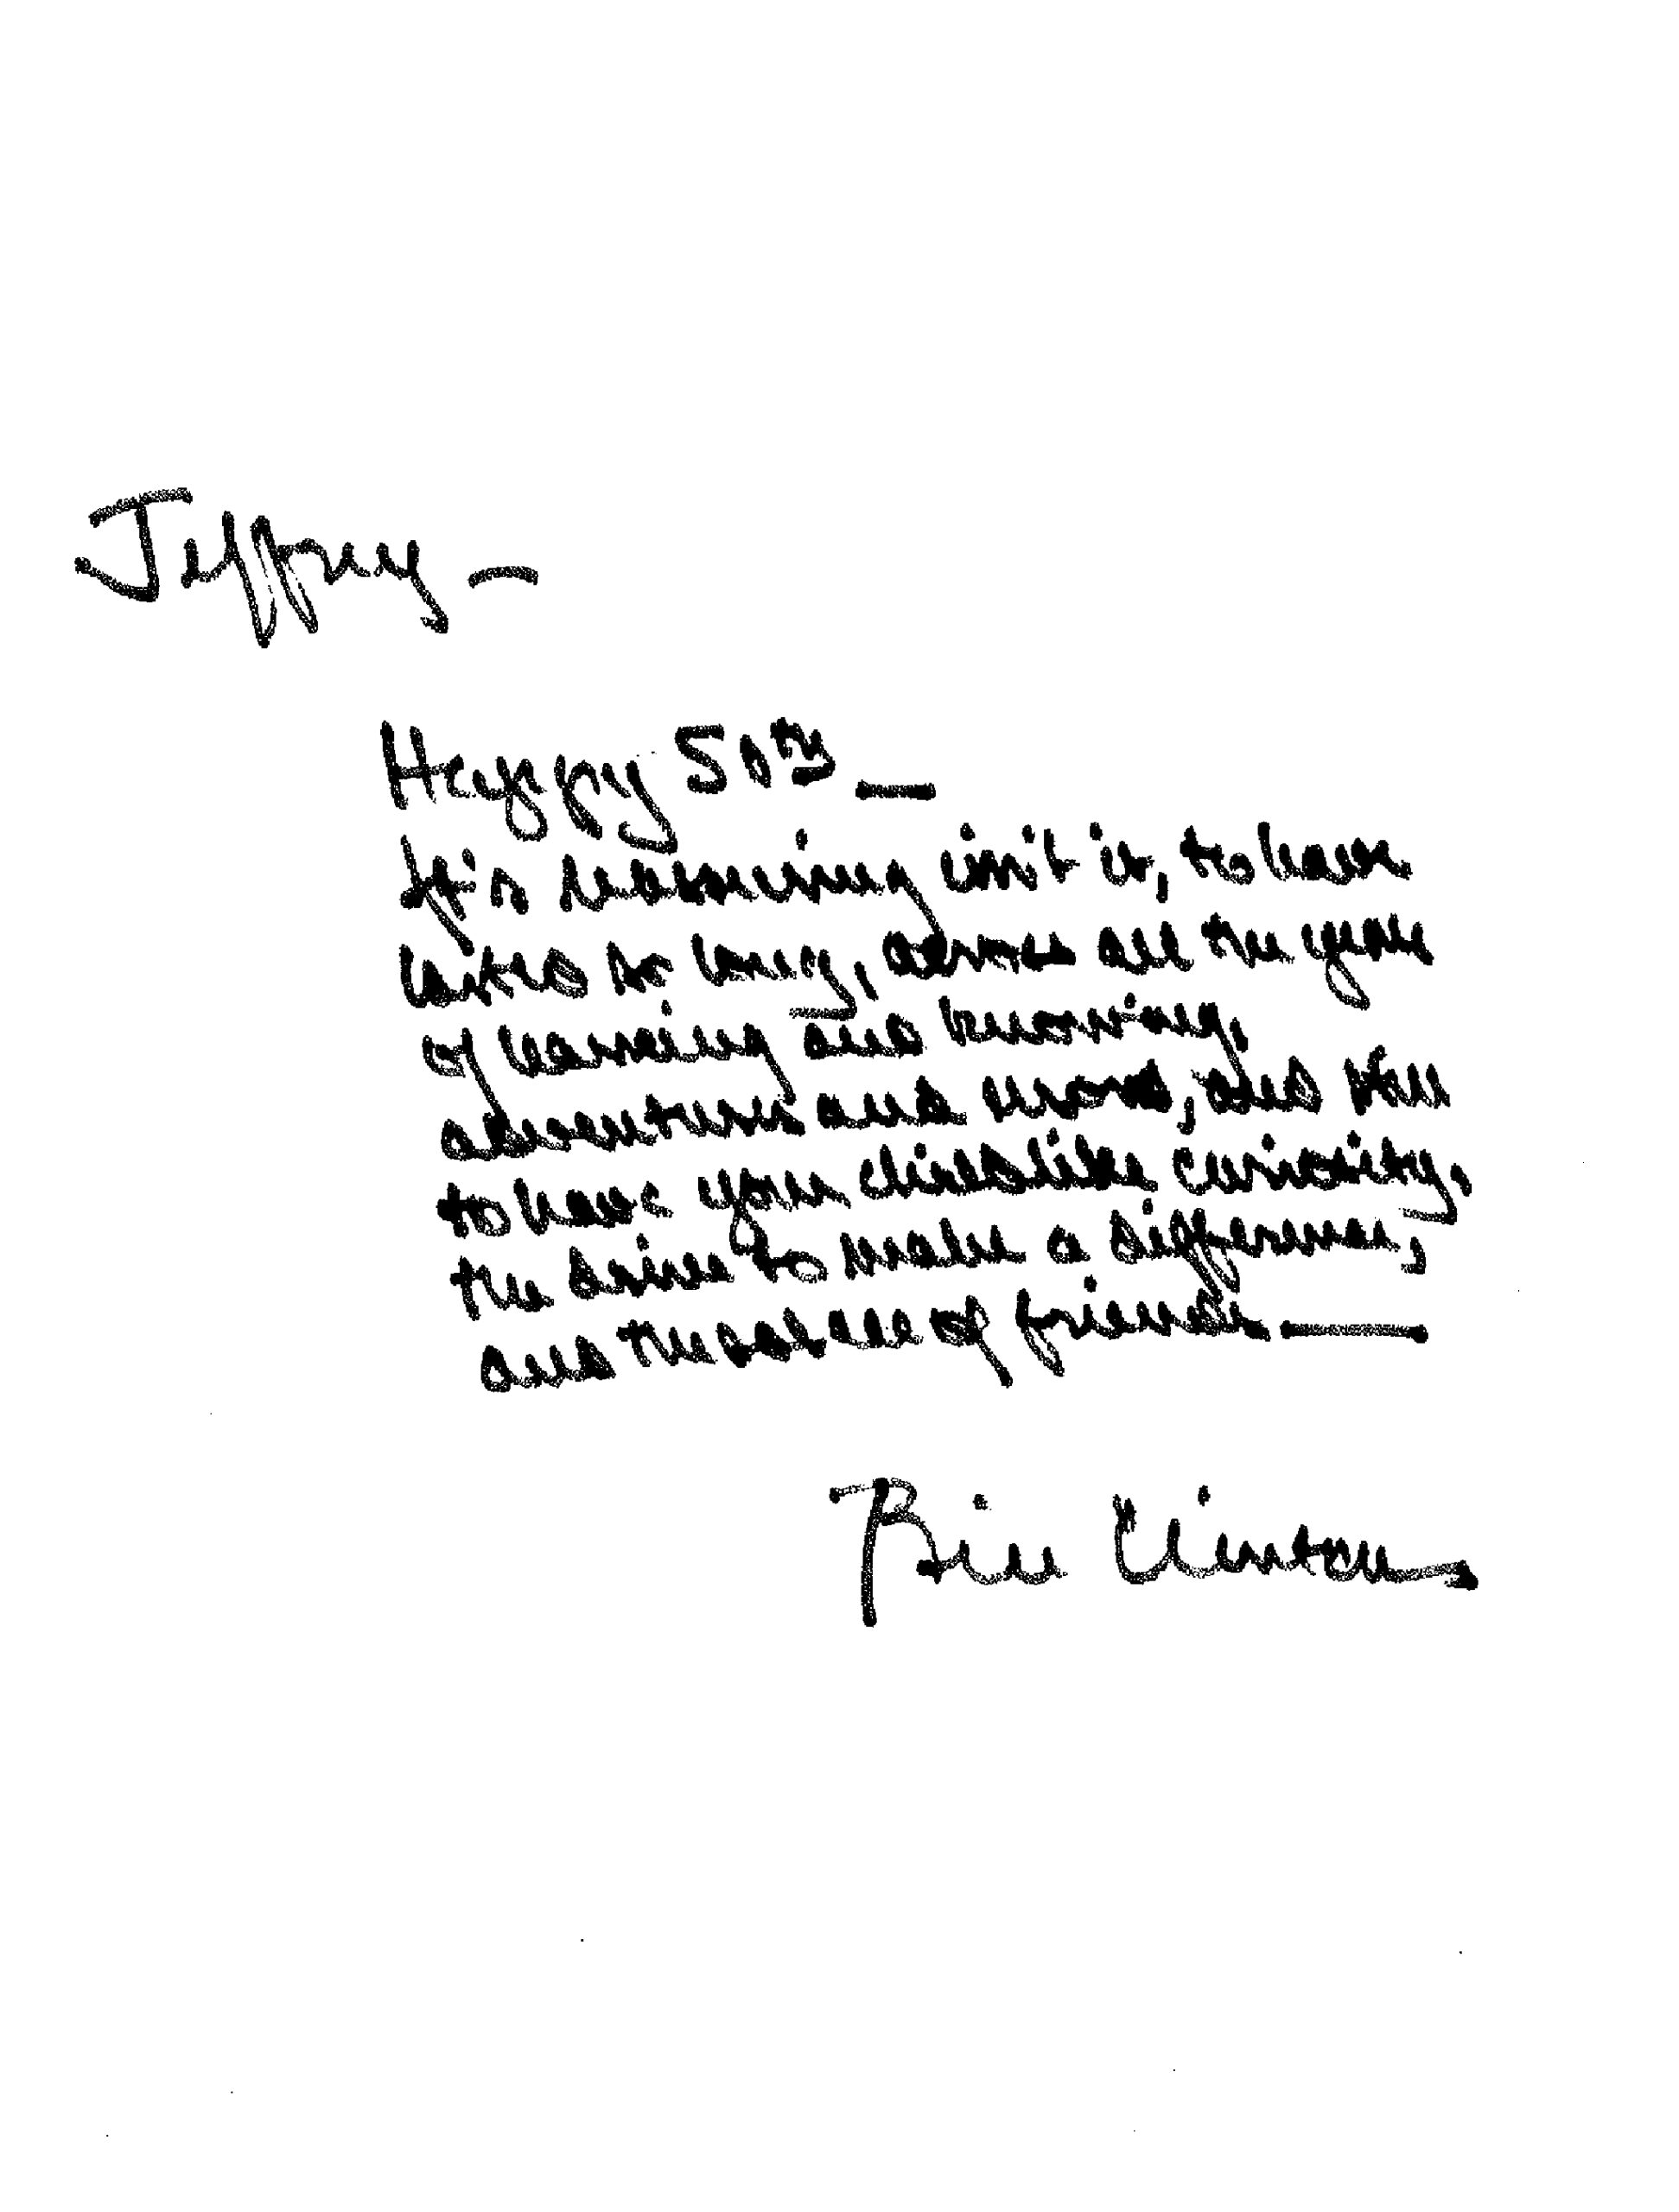 Jeffrey —
Happy 50th —
It's reassuring isn't it, to have
lasted as long, across all the years
of learning and knowing,
adventures and and still
to have your childlike curiosity,
the drive to make a difference,
and the solace of friends —
Bill Clinton